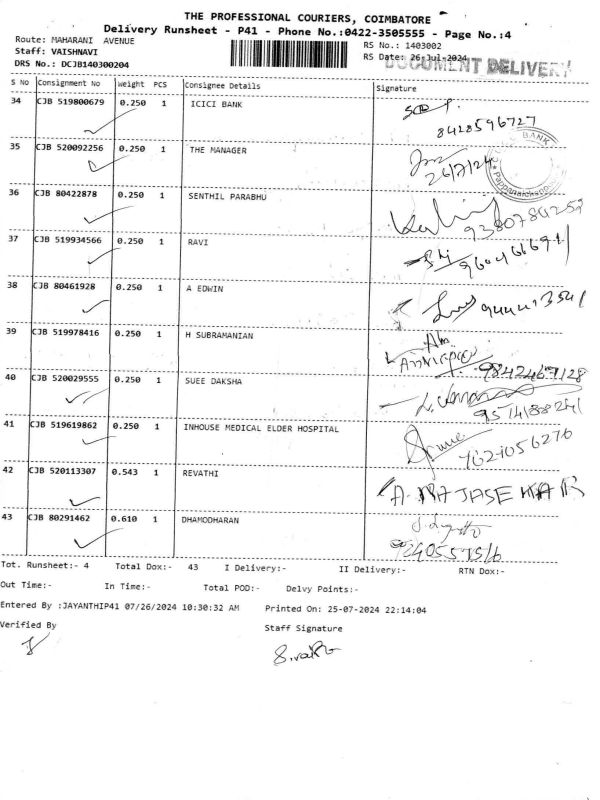 THE PROFESSIONAL COURIERS, COIMBATORE
Delivery Runsheet - P41 - Phone No.:0422-3505555 - Page No.:4
Route: MAHARANI AVENUE
RS No.: 1403002
Staff: VAISHNAVI
RS Date: 26-Jul-2024
DOCUMENT DELIVERY
DRS No.: DCJB140300204
S No Consignment No Weight PCS Consignee Details Signature
34 CJB 519800679 0.250 1 ICICI BANK
8428596727
35 CJB 520092256 0.250 1 THE MANAGER
26/7/24
BANK
36 CJB 80422878 0.250 1 SENTHIL PARABHU
9380784259
37 CJB 519934566 0.250 1 RAVI
38 CJB 80461928 0.250 1 A EDWIN
39 CJB 519978416 0.250 1 H SUBRAMANIAN
40 CJB 520029555 0.250 1 SUEE DAKSHA
41 CJB 519619862 0.250 1 INHOUSE MEDICAL ELDER HOSPITAL
42 CJB 520113307 0.543 1 REVATHI
A. RAJASEKAR
43 CJB 80291462 0.610 1 DHAMODHARAN
Tot. Runsheet:- 4 Total Dox:- 43 I Delivery:- II Delivery:- RTN Dox:-
Out Time:- In Time:- Total POD:- Delvy Points:-
Entered By :JAYANTHIP41 07/26/2024 10:30:32 AM Printed On: 25-07-2024 22:14:04
Verified By Staff Signature